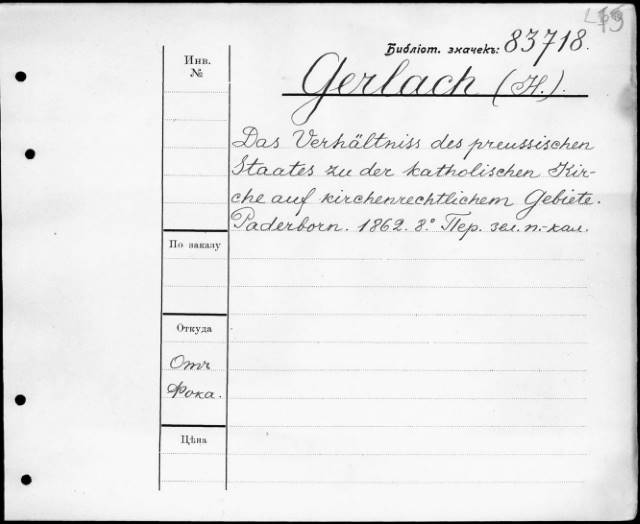 Библіот. значекъ: 83718.
Инв.
№
Gerlach (H.).
Das Verhältniss des preussischen
Staates zu der katholischen Kir-
che auf kirchenrechtlichem Gebiete.
Paderborn. 1862. 8.° Пер. зел. п.-кал.
По заказу
Откуда
Отъ
Фока.
Цѣна